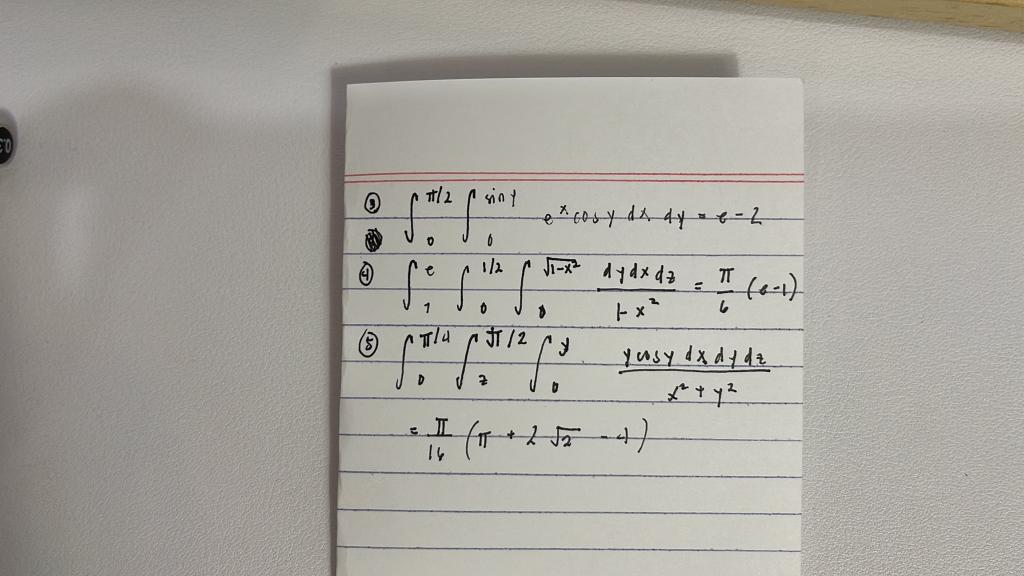 ③ ∫₀^{π/2} ∫₀^{sin y} e^x cos y dx dy = e - 2
④ ∫₁^e ∫₀^{1/2} ∫₀^{√(1-x²)} dy dx dz / (1-x²) = π/6 (e-1)
⑤ ∫₀^{π/4} ∫_z^{π/2} ∫₀^y y cos y dx dy dz / (x² + y²)
= π/16 (π + 2√2 - 4)